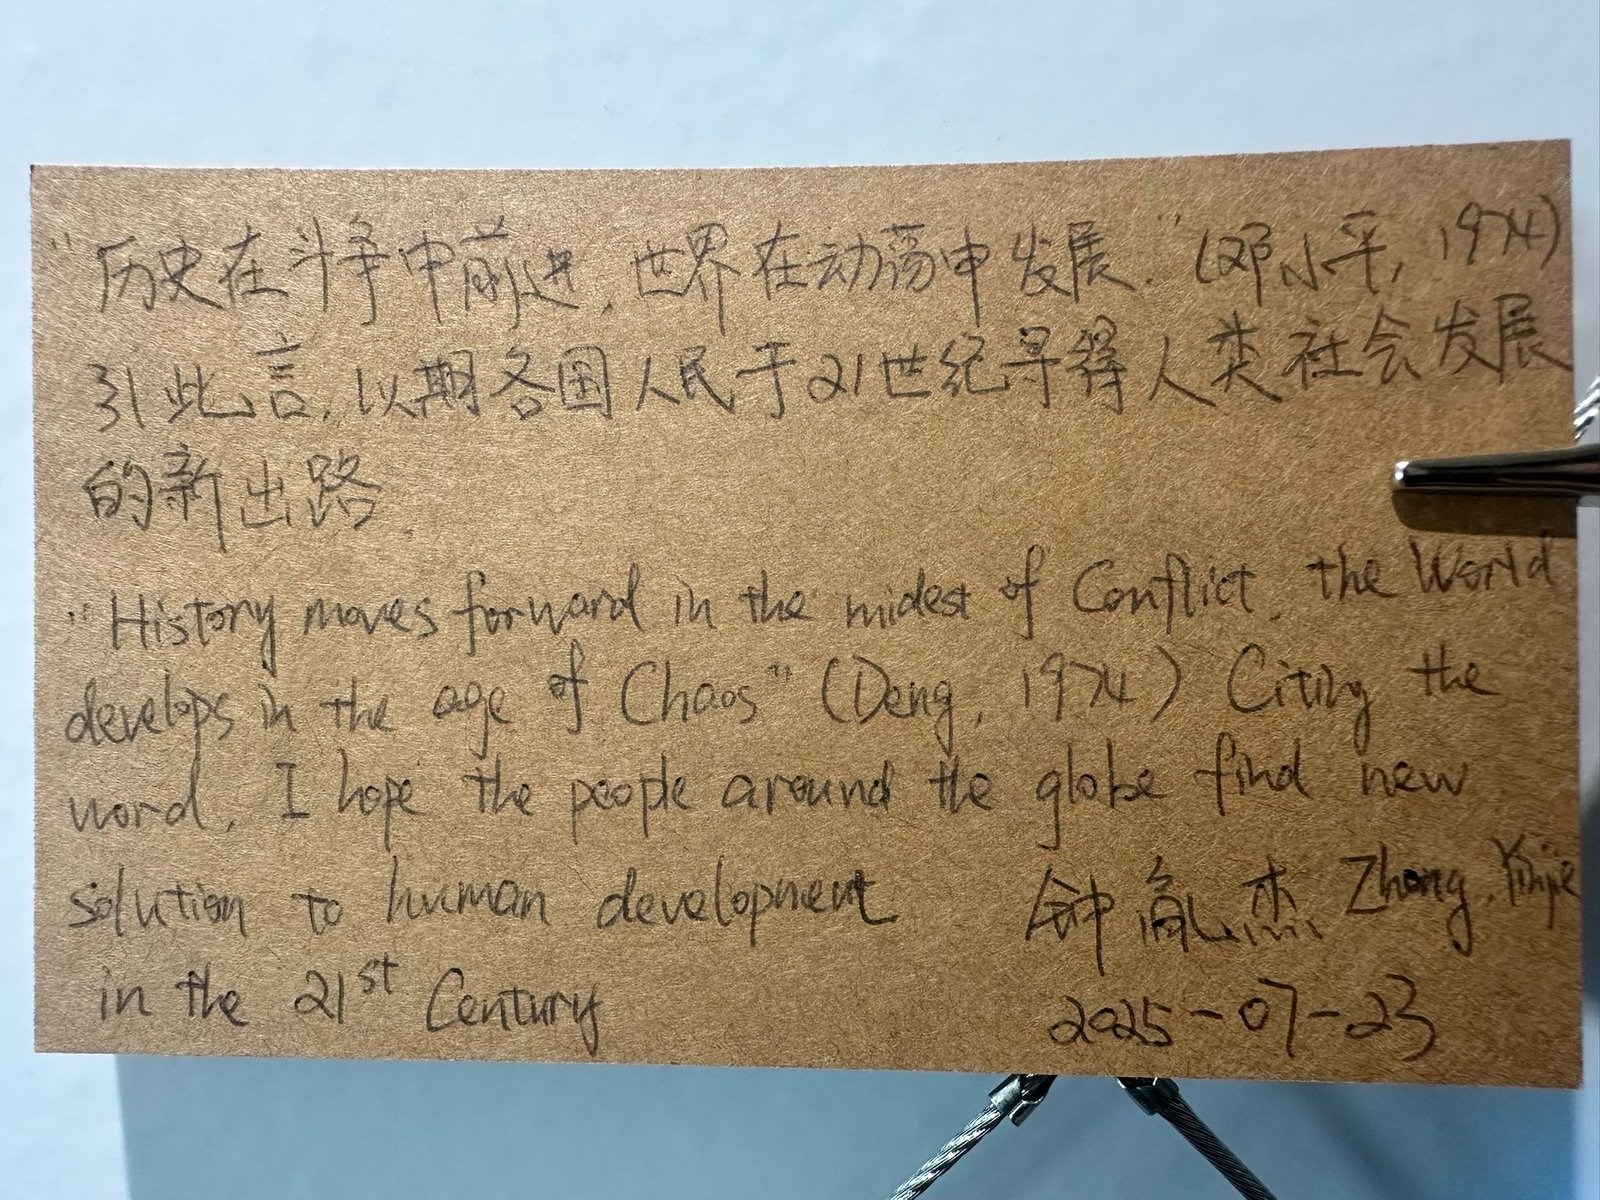 "历史在斗争中前进,世界在动荡中发展."(邓小平,1974)
引此言,以期各国人民于21世纪寻得人类社会发展
的新出路.
"History moves forward in the midest of Conflict, the World
develops in the age of Chaos" (Deng, 1974) Citing the
word, I hope the people around the globe find new
solution to human development
in the 21st Century
钟 杰 Zhong,
2025-07-23